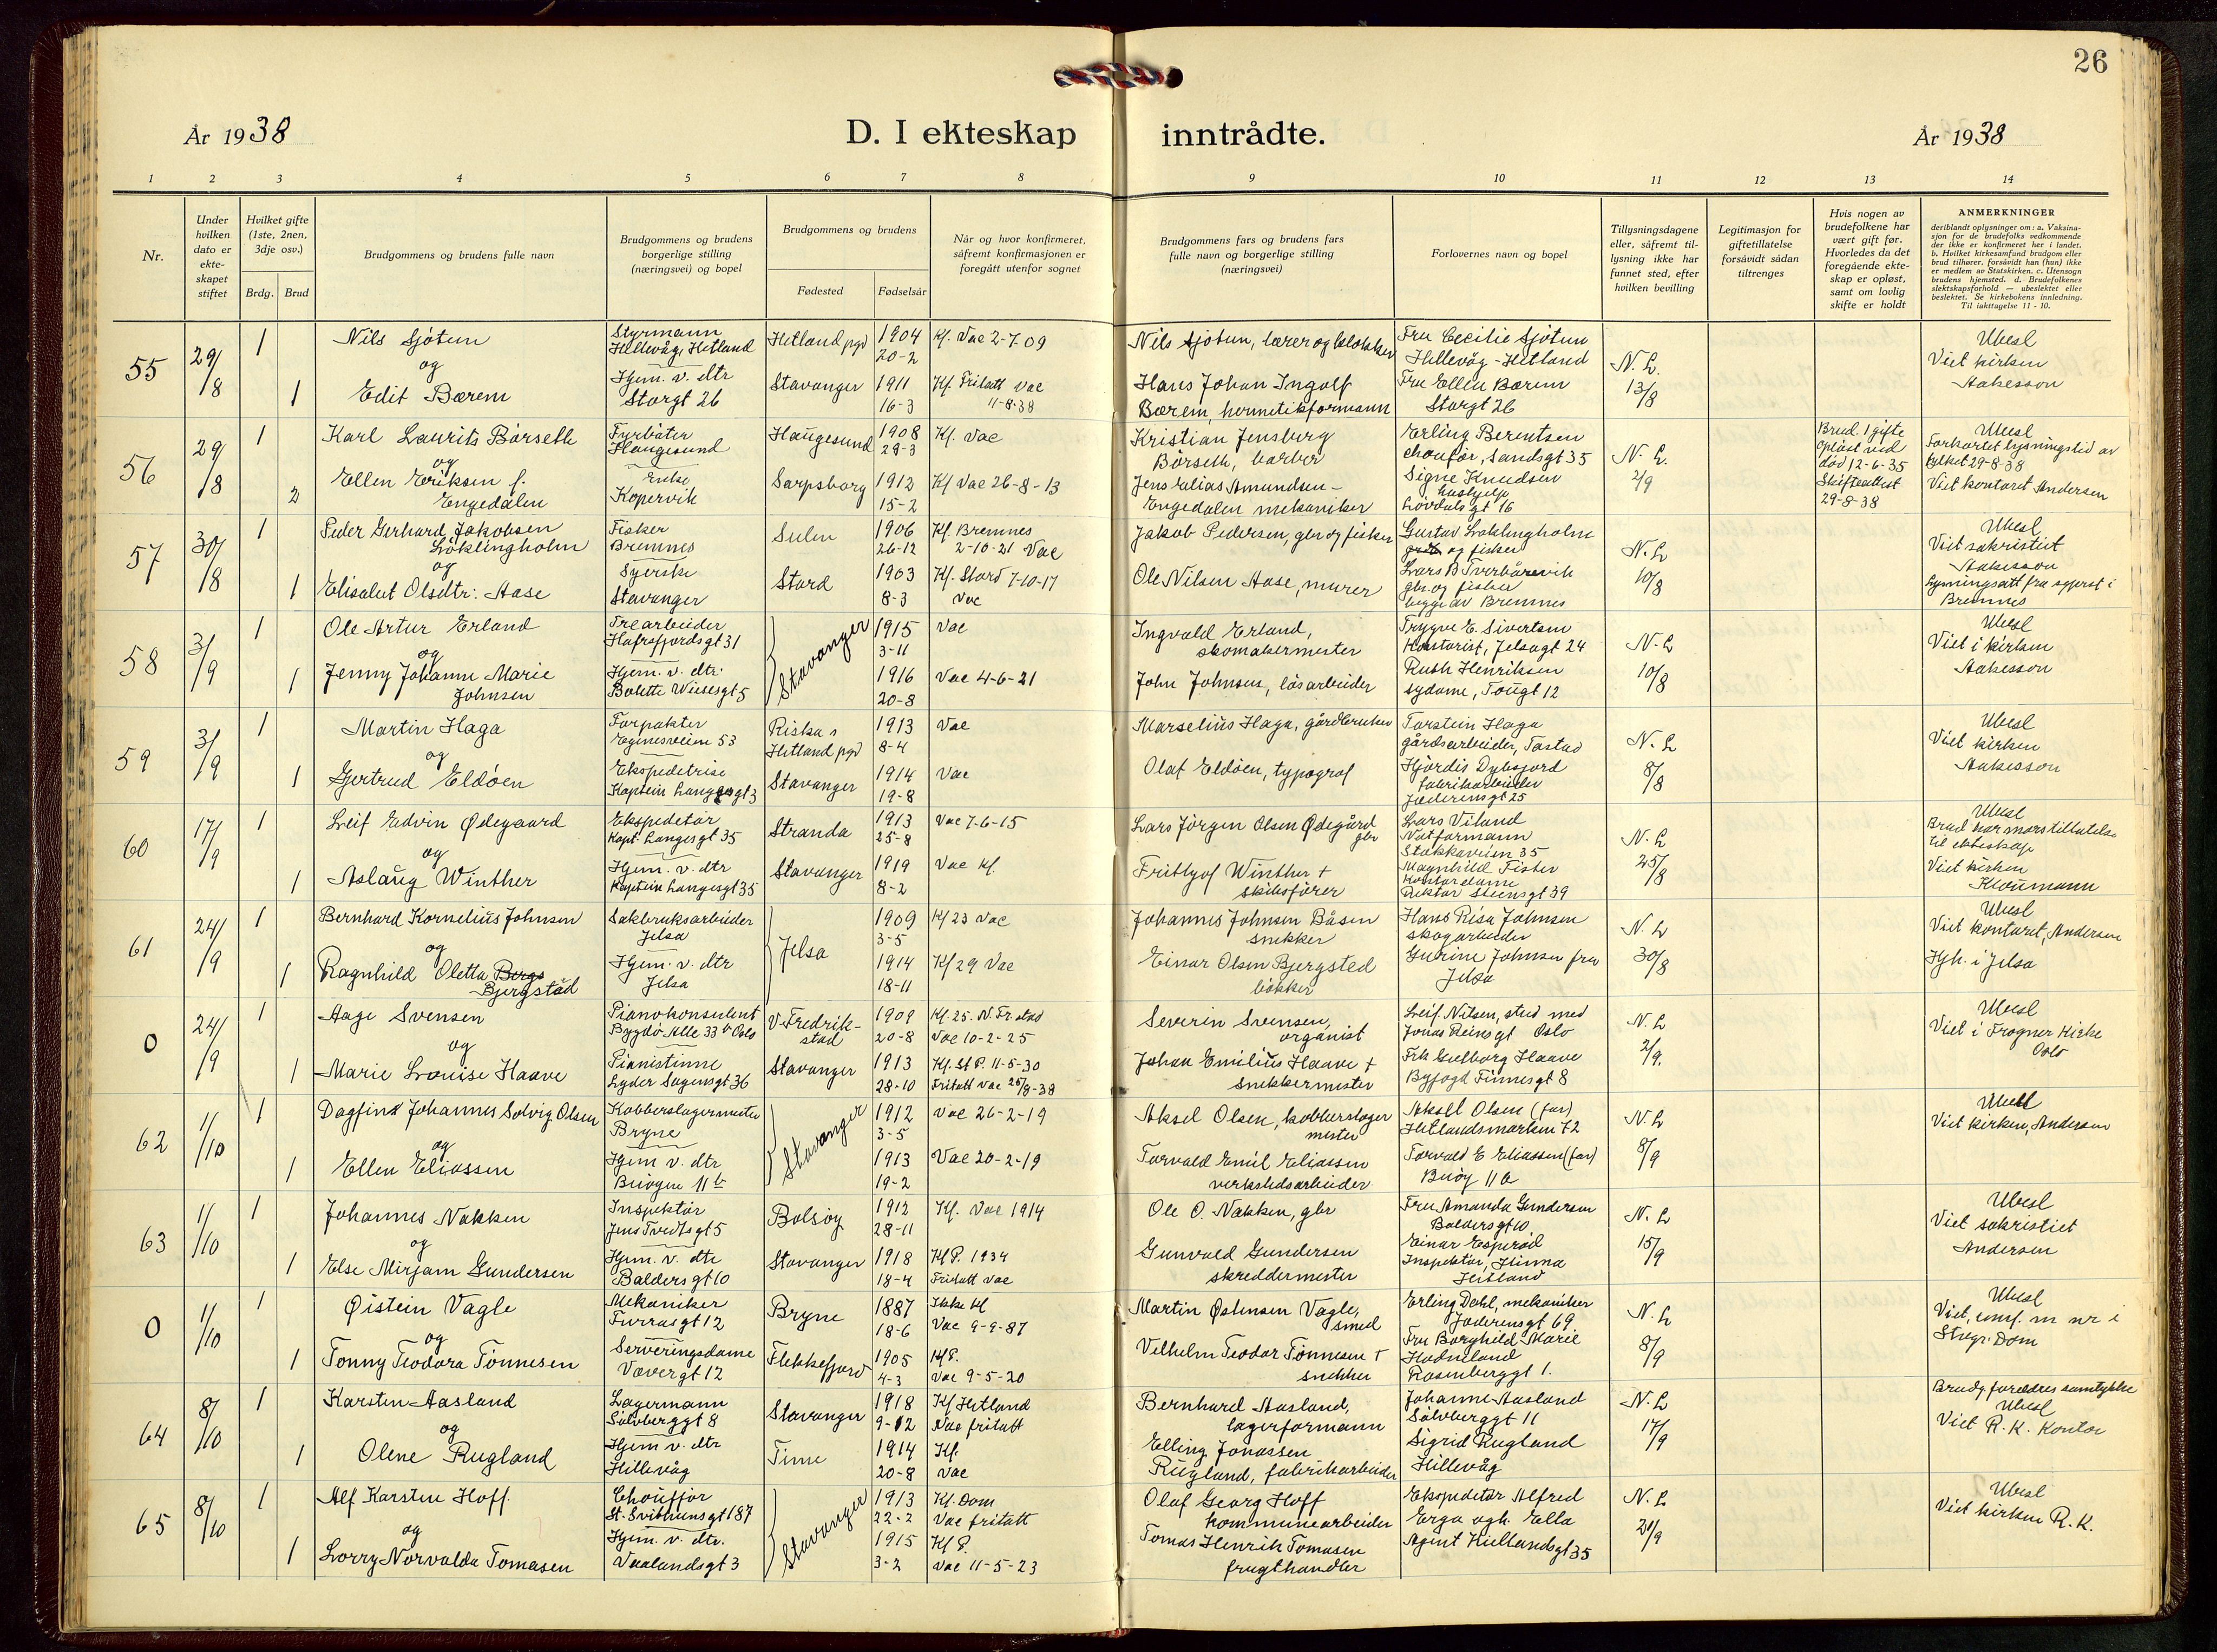 26
År 1938
D. I ekteskap inntrådte.
År 1938
1 2 3 4 5 6 7 8 9 10 11 12 13 14
Nr.
Under hvilken dato er ekteskapet stiftet
Hvilket gifte (1ste, 2nen, 3dje osv.)
Brdg. Brud
Brudgommens og brudens fulle navn
Brudgommens og brudens borgerlige stilling (næringsvei) og bopel
Brudgommens og brudens
Fødested Fødselsår
Når og hvor konfirmeret, såfremt konfirmasjonen er foregått utenfor sognet
Brudgommens fars og brudens fars fulle navn og borgerlige stilling (næringsvei)
Forlovernes navn og bopel
Tillysningsdagene eller, såfremt tillysning ikke har funnet sted, efter hvilken bevilling
Legitimasjon for giftetillatelse forsåvidt sådan tiltrenges
Hvis nogen av brudefolkene har vært gift før. Hvorledes da det foregående ekteskap er opløst, samt om lovlig skifte er holdt
ANMERKNINGER
deriblandt oplysninger om: a. Vaksinasjon for de brudefolks vedkommende der ikke er konfirmeret her i landet. b. Hvilket kirkesamfund brudgom eller brud tilhører, forsåvidt han (hun) ikke er medlem av Statskirken. c. Utensogn brudens hjemsted. d. Brudefolkenes slektskapsforhold — ubeslektet eller beslektet. Se kirkebokens innledning. Til iakttagelse 11 - 10.
55 29/8 1 Nils Sjötun
Styrmann Hillevåg, Hetland
Hetland pgd 1904 20-2
Kf. Vac 2-7-09
Nils Sjötun, lærer og klokker
Fru Cecilie Sjötun Hillevåg - Hetland
N. L. 13/8
Ubesl Viet kirken Aakesson
og
1 Edit Bærem
Hjem. v. dtr Storgt 26
Stavanger 1911 16-3
Kf. Fritatt vac 11-8-38
Hans Johan Ingolf Bærem, hermetikformann
Fru Ellen Bærem Storgt 26
56 29/8 1 Karl Laurits Börseth
Fyrböter Haugesund
Haugesund 1908 29-3
Kf. Vac
Kristian Jensberg Börseth, barber
Erling Berentsen chauför, Sandsgt 35
N. L. 2/9
Brud. 1 gifte opløst ved död 12-6-35 Skifteattest 29-8-38
Ubesl Forkortet lysningstid av fylket 29-8-38 Viet kontoret Andersen
og
2 Ellen Eriksen f. Engedalen
Enke Kopervik
Sarpsborg 1912 15-2
Kf Vac 26-8-13
Jens Elias Amundsen - Engedalen mekaniker
Signe Knudsen hushjelp Lövdalsgt 16
57 30/8 1 Peder Gerhard Jakobsen Löklingholm
Fisker Bremnes
1906 26-12
Kf. Bremnes 2-10-21 Vac
Jakob Pedersen, gbr og fisker
Gustav Löklingholm og fisker
N. L 10/8
Ubesl Viet sakristiet Aakesson
og
1 Elisabet Olsdtr. Aase
Syerske Stavanger
Stord 1903 8-3
Kf. Stord 7-10-17 Vac
Ole Nilsen Aase, murer
Lars B gbr. og fisker begge av Bremnes
Lysningsatt fra sgprst i Bremnes
58 3/9 1 Ole Artur Erland
Trearbeider Hafrsfjordsgt 31
Stavanger 1915 3-11
Vac
Ingvald Erland, skomakermester
Trygve E. Sivertsen Kontorist, Jelsagt 24
N. L 10/8
Ubesl Viet i kirken Aakesson
og
1 Jenny Johanne Marie Johnsen
Hjem. v. dtr. Bolette Wiesesgt 5
1916 20-8
Vac 4-6-21
John Johnsen, løsarbeider
Ruth Henriksen sydame, Tougt 12
59 3/9 1 Martin Haga
Forpakter Eiganesveien 53
Riska i Hetland pgd 1913 8-4
Vac
Marselius Haga, gårdbruker
Torstein Haga gårdsarbeider, Tastad
N. L 8/8
Ubesl Viet kirken Aakesson
og
1 Gertrud Eldöen
Ekspeditrise Kaptein Langesgt 3
Stavanger 1914 19-8
Vac
Olaf Eldöen, typograf
Hjördis Dybsjord fabrikarbeider Jæderensgt 25
60 17/9 1 Leif Edvin Ødegaard
Ekspeditør Kapt. Langesgt 35
Stranda 1913 25-8
Vac 7-6-15
Lars Jörgen Olsen Ødegård gbr
Lars Viland Stokkaveien 35
N. L 25/8
Ubesl Brud har mors tillatelse til ekteskap Viet kirken Kloumann
og
1 Aslaug Winther
Hjem. v. dtr Kaptein Langesgt 35
Stavanger 1919 8-2
Vac Kf.
Fritjof Winther + skibsfører
Magnhild Fister kontordame Rektor Steensgt 39
61 24/9 1 Bernhard Kornelius Johnsen
Sakbruksarbeider Jelsa
Jelsa 1909 3-5
Kf 23 Vac
Johannes Johnsen Båsen snekker
Hans Risa Johnsen skogarbeider
N. L 30/8
Ubesl Viet kontoret, Andersen Hjh. i Jelsa
og
1 Ragnhild Oletta Bergs Bjergstad
Hjem. v. dtr Jelsa
1914 18-11
Kf 29 Vac
Einar Olsen Bjergsted bökker
Gurine Johnsen fru Jelsa
0 24/9 1 Aage Svensen
Pianokonsulent Bygdö Alle 33 b Oslo
V Fredrikstad 1909 20-8
Kf. 25. N. Fr.stad Vac 10-2-25
Severin Svensen, organist
Leif Nilsen, stud med Jonas Reinsgt Oslo
N. L 2/9.
Ubesl Viet i Frogner Kirke Oslo
og
1 Marie Louise Haave
Pianistinne Lyder Sagensgt 36
Stavanger 1913 28-10
Kf. St P. 11-5-30 Fritatt vac 25/8-38
Johan Emilius Haave + snekkermester
Frk Gulborg Haave Byfogd Finnesgt 8
62 1/10 1 Dagfinn Johannes Solvig Olsen
Kobberslagermester Bryne
Stavanger 1912 3-5
Vac 26-2-19
Aksel Olsen, kobberslager mester
Aksel Olsen (far) Hetlandsmarken 72
N. L 8/9
Ubesl Viet kirken, Andersen
og
1 Ellen Eliassen
Hjem v. dtr Buöygen 11 b
1913 19-2
Vac 20-2-19
Torvald Emil Eliassen verkstedsarbeider
Torvald E Eliassen (far) Buöy 11 b
63 1/10 1 Johannes Nakken
Inspektør Jens Tvedtsgt 5
Bolsöy 1912 28-11
Kf. Vac 1914
Ole O. Nakken, gbr
Fru Amanda Gundersen Baldersgt 10
N. L 15/9
Ubesl Viet sakristiet Andersen
og
1 Else Mirjam Gundersen
Hjem. v. dtr Baldersgt 10
Stavanger 1918 18-4
Kf P. 1934 Fritatt vac
Gunvald Gundersen skreddermester
Einar Esperöd Inspektør, Hinna Hetland
0 1/10 1 Øistein Vagle
Mekaniker Furrasgt 12
Bryne 1887 18-6
Ikke Kf Vac 9-9-87
Martin Østensen Vagle, smed
Erling Dahl, mekaniker Jæderensgt 69
N. L 8/9
Ubesl Viet, conf. m nr i Stvgr. Dom
og
1 Tonny Teodora Tönnesen
Serveringsdame Vævergt 12
Flekkefjord 1905 4-3
Kf P. Vac 9-5-20
Vilhelm Teodor Tönnesen + snekker
Fru Borghild Marie Hodneland Rosenberggt 1.
64 8/10 1 Karsten Aasland
Lagermann Sölvberggt 8
Stavanger 1918 9-12
Kf Hetland Vac fritatt
Bernhard Aasland, lagerformann
Johanne Aasland Sölvberggt 11
N. L 17/9
Brudg. foreldres samtykke Ubesl Viet R. K. Kontor
og
1 Olene Rugland
Hjem v. dtr Hillevåg
Time 1914 20-8
Kf. Vac
Elling Jonassen Rugland, fabrikarbeider
Sigrid Rugland Hillevåg
65 8/10 1 Alf Karsten Hoff.
Chouffør St. Svithunsgt 187
Stavanger 1913 22-2
Kf. Dom Vac fritatt
Olaf Georg Hoff kommunearbeider
Ekspeditør Alfred Erga ogh. Ella
N. L 21/9
Ubesl Viet kirken R. K.
og
1 Lorry Norvalda Tomasen
Hjem. v. dtr. Vaalandsgt 3
1915 3-2
Kf P. Vac 11-5-23
Tomas Henrik Tomasen frugthandler
Agent Kiellandsgt 35